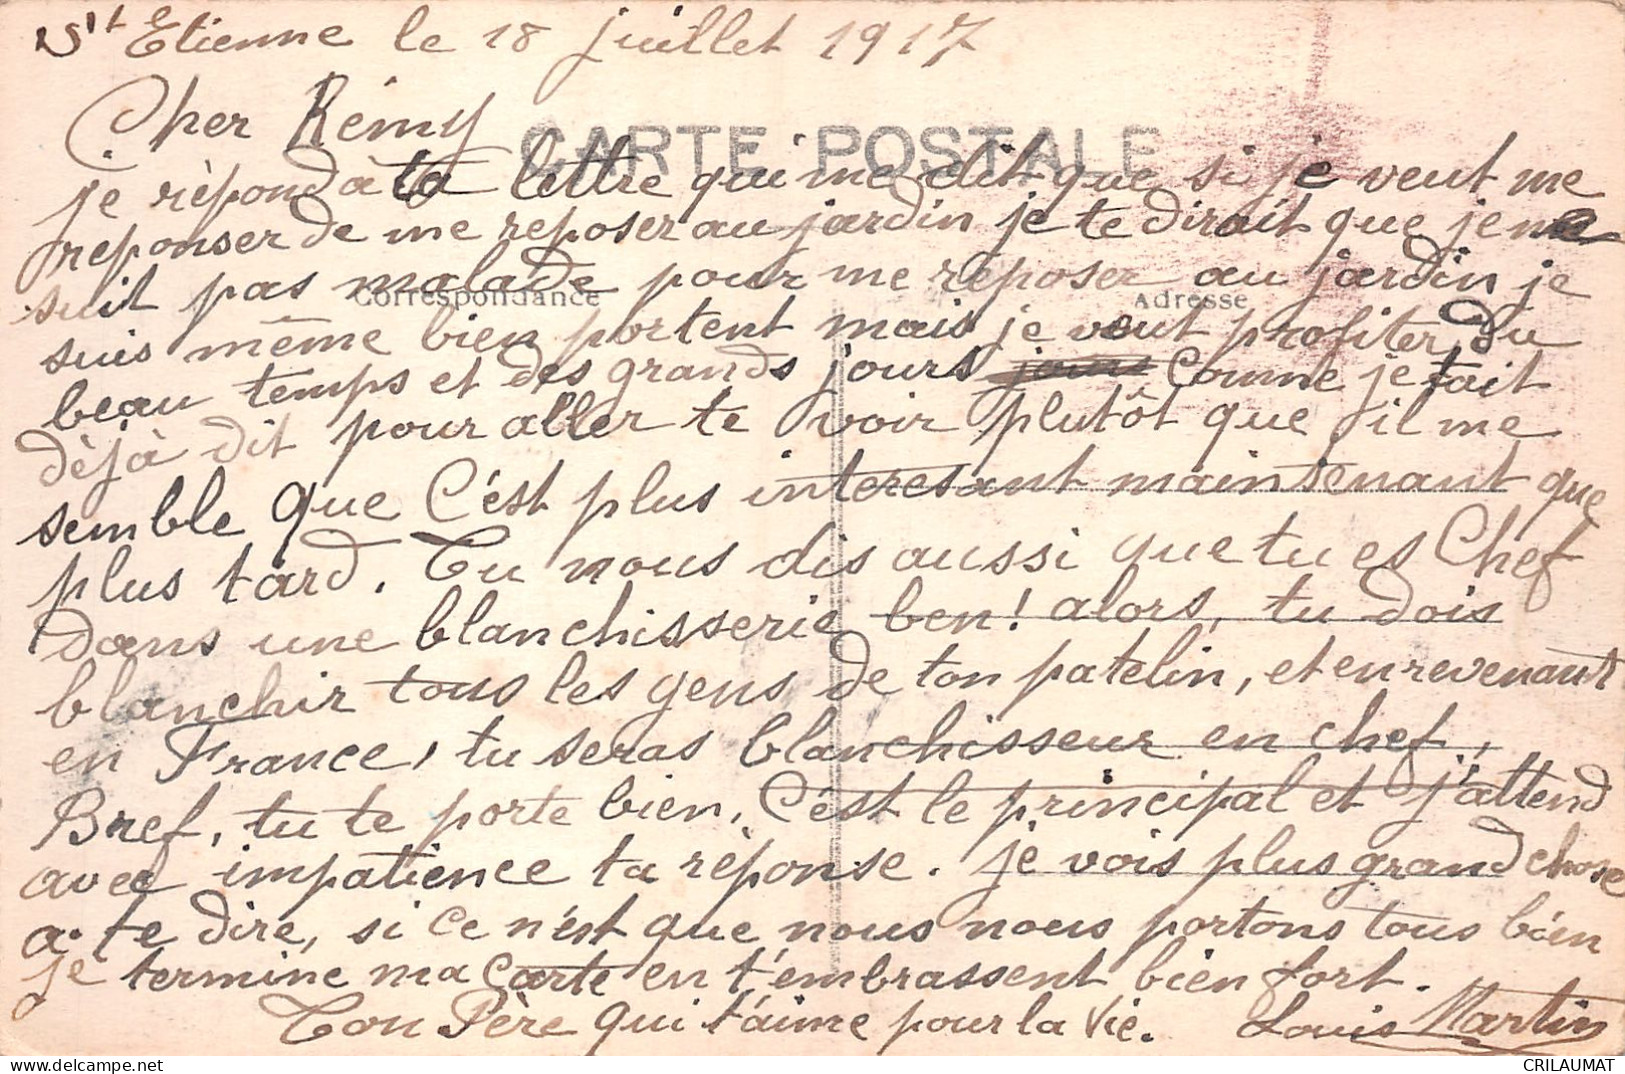 St Etienne le 18 juillet 1917
Cher Rémy
CARTE POSTALE
je rèpond à ta lettre qui me dit que si je veut me
reponser de me reposer au jardin je te dirait que je ne
suit pas malade pour me reposer au jardin je
Correspondance
Adresse
suis même bien portent mais je veut profiter du
beau temps et des grands jours jours Comme je tait
dèjà dit pour aller te voir plutôt que il me
semble que C'est plus interesant maintenant que
plus tard. Tu nous dis aussi que tu es Chef
dans une blanchisserie ben! alors, tu dois
blanchir tous les gens de ton patelin, et en revenant
en France, tu seras blanchisseur en chef,
Bref, tu te porte bien, C'est le principal et j'attend
avec impatience ta rèponse. je vois plus grand chose
a te dire, si ce n'est que nous nous portons tous bien
je termine ma carte en t'embrassent bien fort.
Ton Père qui t'aime pour la vie. Louis Martin
CRILAUMAT